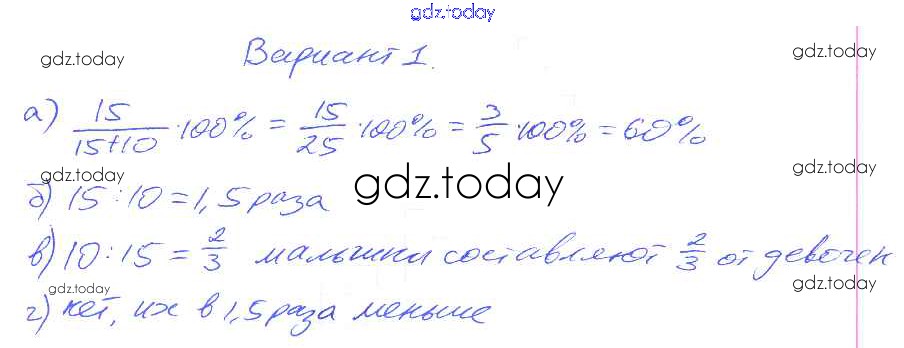 gdz.today
gdz.today gdz.today
Вариант 1.
а) 15/(15+10) · 100% = 15/25 · 100% = 3/5 · 100% = 60%
gdz.today gdz.today gdz.today
б) 15 : 10 = 1,5 раза
в) 10 : 15 = 2/3 малышки составляют 2/3 от девочек
gdz.today gdz.today
г) нет, их в 1,5 раза меньше